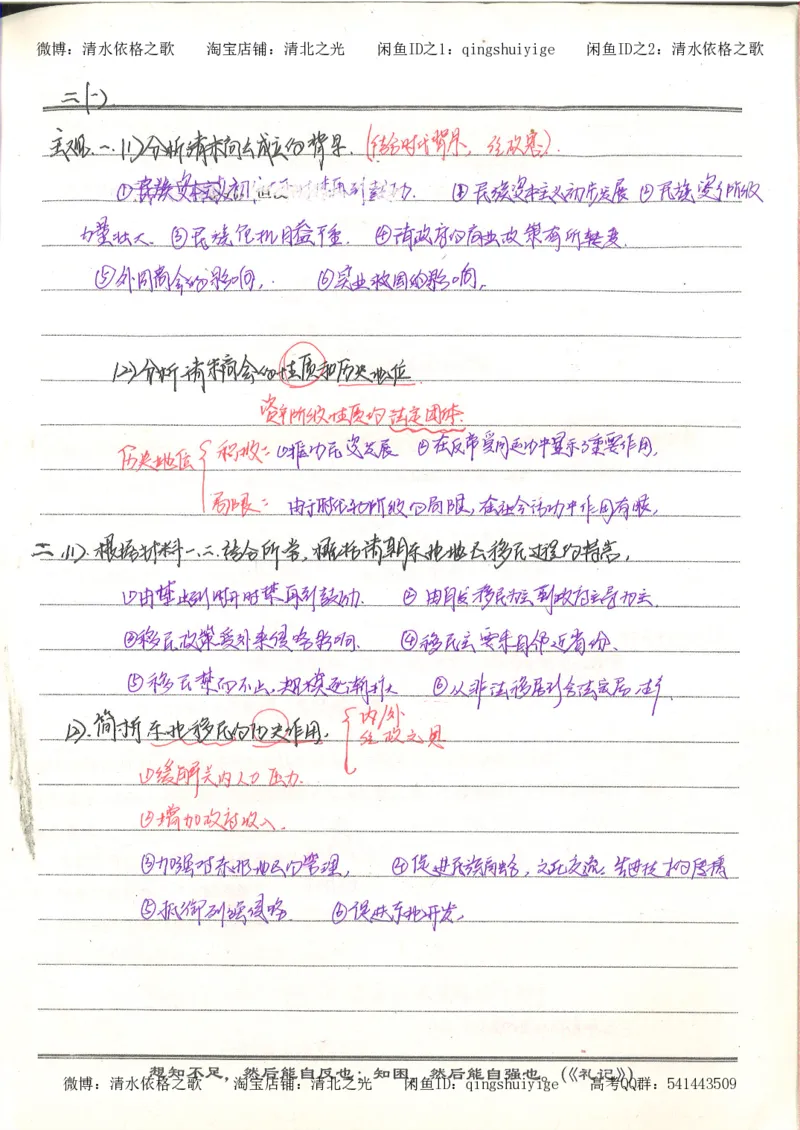 微博：清水依格之歌 淘宝店铺：清北之光 闲鱼ID之1：qingshuiyige 闲鱼ID之2：清水依格之歌
二(一).
主观.一.(1)分析清末商会成立的背景.(结合时代背景，经政思).
①民族资本主义初 ①民族资本主义初步发展 ②民族资产阶级
力量壮大. ③民族危机日益严重. ④清政府的商业政策有所转变.
⑤外国商会的影响，. ⑥实业救国的影响，
(2)分析清末商会的性质和历史地位.
资产阶级性质的法定团体.
历史地位 积极：①推动民资发展 ②在反帝爱国运动中显示了重要作用.
局限：由于时代和阶级的局限，在社会活动中作用有限.
二.(1).根据材料一、二.结合所学，概括清朝东北地区移民过程的特点，
①由禁止到时开时禁再到鼓励. ② 由自发移民为主到政府主导为主.
③移民政策受外来侵略影响. ④移民主要来自邻近省份.
⑤移民禁而不止，规模逐渐扩大 ⑥从非法移居到合法定居
(2).简析东北移民的历史作用. 内/外
经政文思
①缓解关内人力压力.
②增加政府收入.
③加强对东北地区的管理， ④促进民族融合，文化交流；先进技术的传播
⑤抵御列强侵略. ⑥促进东北开发.
想知不足，然后能自反也；知困，然后能自强也。(《礼记》)
微博：清水依格之歌 淘宝店铺：清北之光 闲鱼ID：qingshuiyige 高考QQ群：541443509